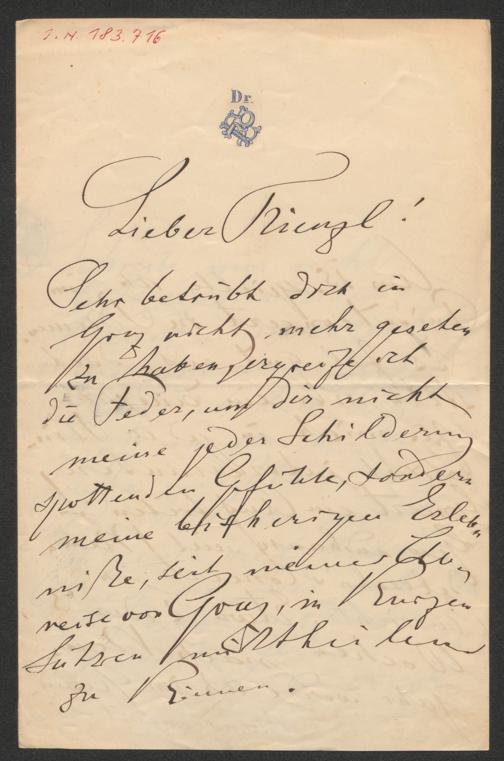 I.N. 183.716
Dr.
Lieber Kienzl!
Sehr betrübt dich in
Graz nicht mehr gesehen
zu haben, ergreife ich
die Feder, um dir nicht
meine jeder Schilderung
spottenden Gefühle, sondern
meine bisherigen Erleb-
niße, seit meiner Ab-
reise von Graz, in kurzen
Sätzen mittheilen
zu können.